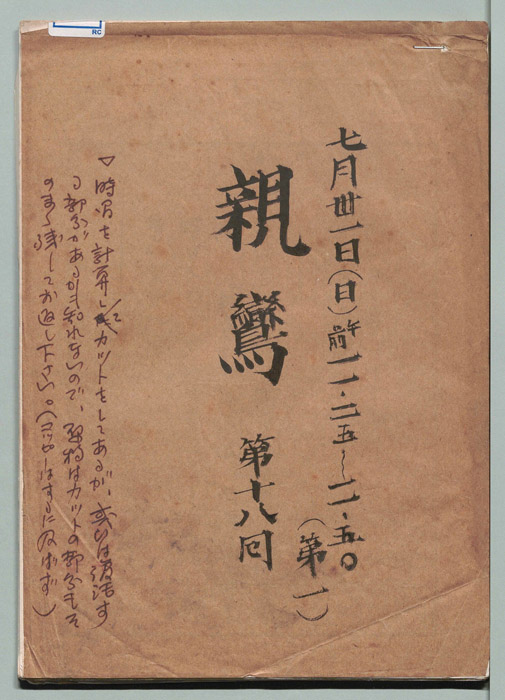 七月卅一日（日）午前一一・二五〜一一・五〇
（第一）
親鸞 第十八回
▽時間を計算してカットをしてあるが、或いは復活す
る部分があるかも知れないので、原稿はカットの部分もそ
のまゝ残してお返し下さい。（コッピーはするに及ばず）
RC